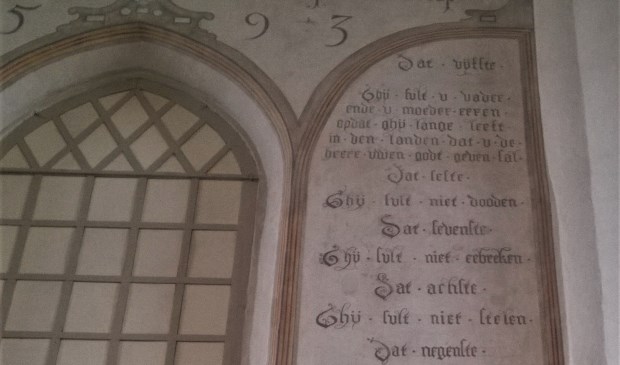 5 9 3
Dat · vijfste ·
Ghij · sult · v · vader ·
ende · v · moeder · eeren ·
opdat · ghij · lange · leeft
in · den · landen · dat · v · de ·
heere · vwen · godt · geven · sal ·
Dat · seste ·
Ghij · sult · niet · dooden ·
Dat · sevenste ·
Ghij · sult · niet · eebrecken ·
Dat · achtste ·
Ghij · sult · niet · stelen ·
Dat · negenste ·